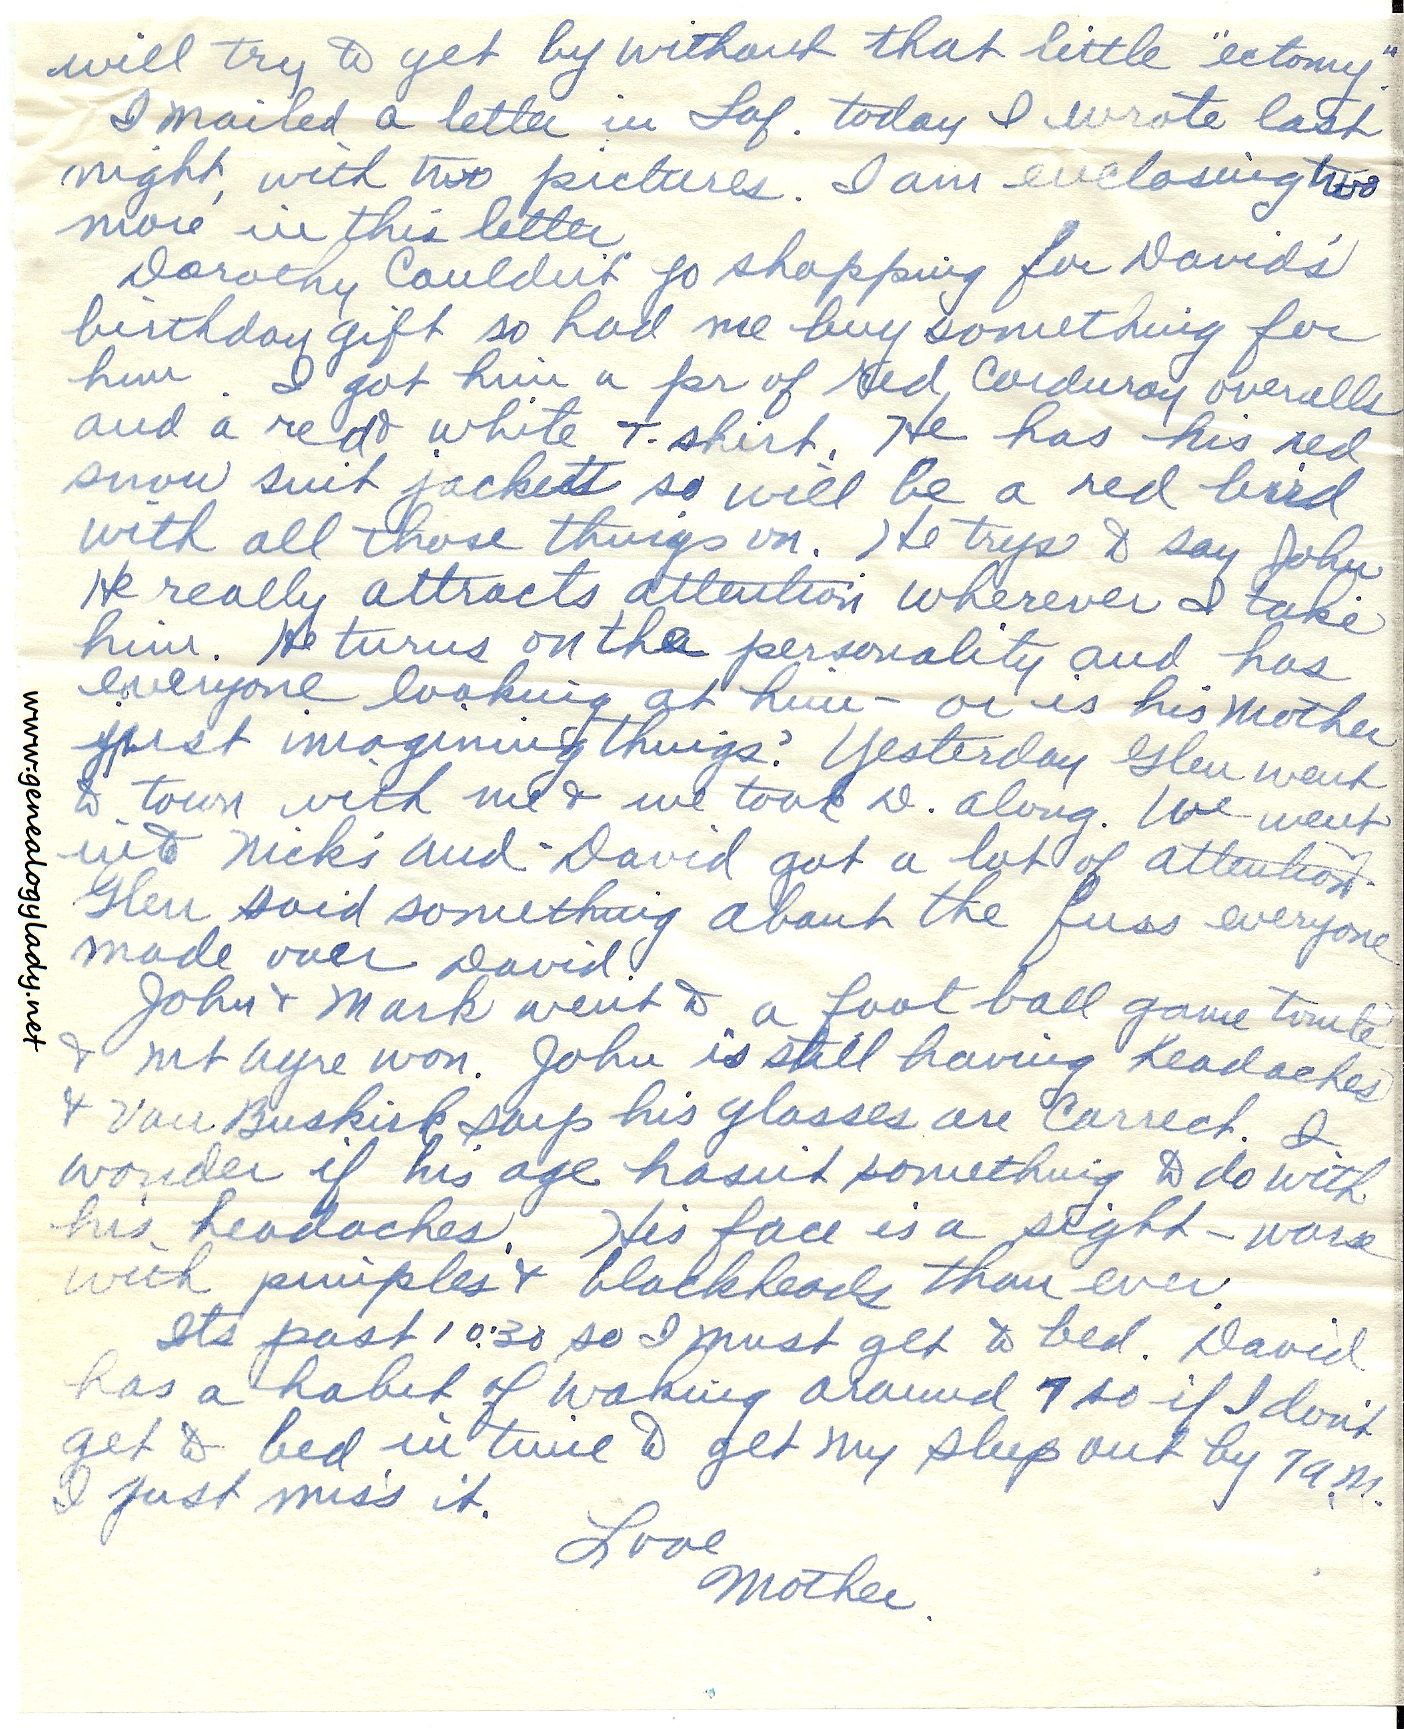 will try to get by without that little "ectomy"
I mailed a letter in Laf. today I wrote last
night, with two pictures. I am enclosing two
more in this letter
Dorothy Couldn't go shopping for David's
birthday gift so had me buy something for
him. I got him a pr of red Corduroy overalls
and a red & white T-shirt. He has his red
snow suit jacket so will be a red bird
with all those things on. He trys to say John
He really attracts attention wherever I take
him. He turns on the personality and has
everyone looking at him - or is his Mother
just imagining things? Yesterday Glen went
to town with me & we took D. along. We went
into Nick's and David got a lot of attention.
Glen said something about the fuss everyone
made over David.
John & Mark went to a foot ball game tonite
& Mt Ayre won. John is still having headaches
& Van Buskirk says his glasses are Correct. I
wonder if his age hasn't something to do with
his headaches. His face is a sight - worse
with pimples & blackheads than ever.
Its past 10:30 so I must get to bed. David
has a habit of waking around 7 so if I don't
get to bed in time to get my sleep out by 7 a.m.
I just miss it.
Love
Mother.
www.genealogylady.net